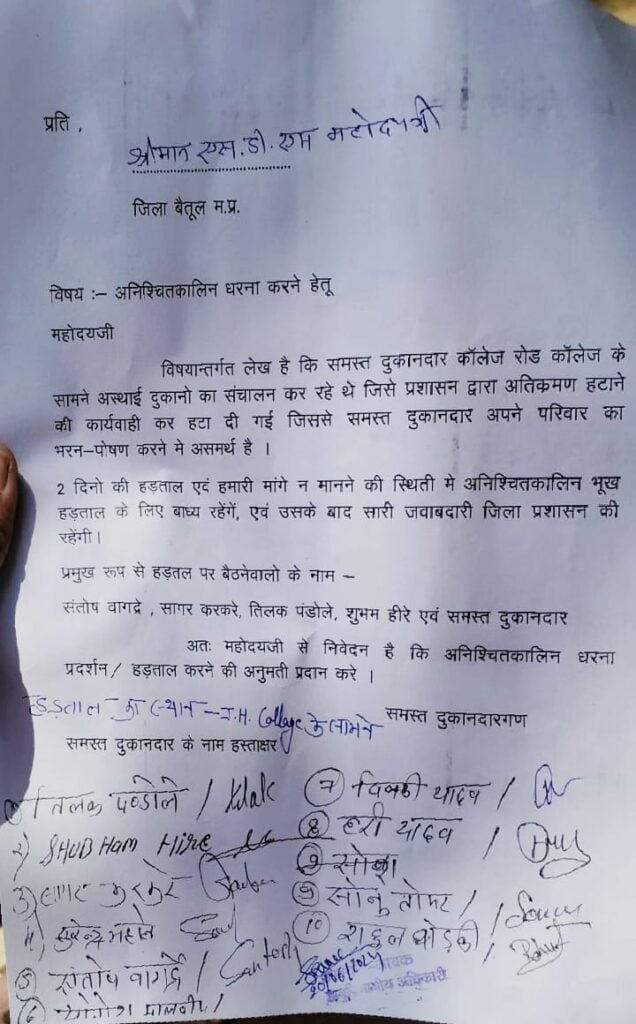 प्रति ,
श्रीमान एस.डी.एम महोदयश्री
जिला बैतूल म.प्र.
विषय :– अनिश्चितकालिन धरना करने हेतू
महोदयजी
विषयान्तर्गत लेख है कि समस्त दुकानदार कॉलेज रोड कॉलेज के
सामने अस्थाई दुकानो का संचालन कर रहे थे जिसे प्रशासन द्वारा अतिक्रमण हटाने
की कार्यवाही कर हटा दी गई जिससे समस्त दुकानदार अपने परिवार का
भरन–पोषण करने मे असमर्थ है ।
2 दिनो की हड़ताल एवं हमारी मांगे न मानने की स्थिती मे अनिश्चितकालिन भूख
हड़ताल के लिए बाध्य रहेंगें, एवं उसके बाद सारी जवाबदारी जिला प्रशासन की
रहेंगी।
प्रमुख रूप से हड़तल पर बैठनेवालो के नाम –
संतोष वागद्रे , सागर करकरे, तिलक पंडोले, शुभम हीरे एवं समस्त दुकानदार
अतः महोदयजी से निवेदन है कि अनिश्चितकालिन धरना
प्रदर्शन/ हड़ताल करने की अनुमती प्रदान करे ।
हड़ताल का स्थान – J.H. College के सामने
समस्त दुकानदारगण
समस्त दुकानदार के नाम हस्ताक्षर
1) तिलक पण्डोले / Tilak
2) SHUBHam HIRE
3) सागर करकरे
4) सुरेन्द्र महाले
5) संतोष वागद्रे / Santosh
6) योगेश मालवीय/
7 विक्की यादव /
8 हरी यादव /
9 सोनू
9 सोनू तोमर /
10 राहुल घोड़की /
20/06/2024
अधिकारी